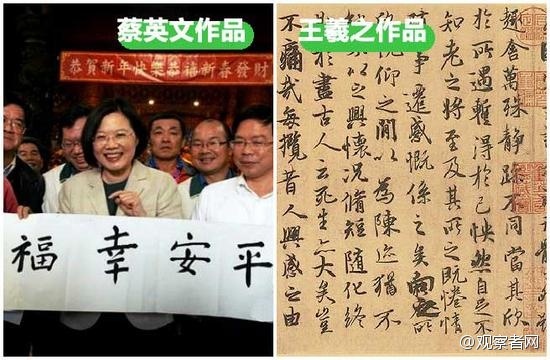 蔡英文作品
王羲之作品
恭賀新年快樂恭禧新春發財
平安幸福
趣舍萬殊靜躁不同當其欣
於所遇暫得於己怏然自足不
知老之將至及其所之既惓情
事遷感慨係之矣向之所
俛仰之閒以為陳迹猶不
以之興懷況脩短隨化終
於盡古人云死生亦大矣豈
不痛哉每攬昔人興感之由
@观察者网